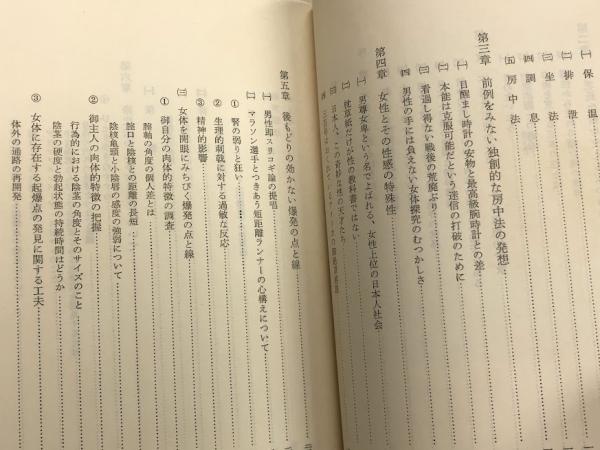 ㈠ 保温
㈡ 排泄
㈢ 坐法
㈣ 調息
㈤ 房中法
第三章 前例をみない独創的な房中法の発想
㈠ 目醒まし時計の安物と最高級腕時計との差
㈡ 本能は克服可能だという迷信の打破のために
㈢ 看過し得ない戦後の荒廃ぶり
㈣ 男性の手には負えない女体探究のむつかしさ
第四章 女性とその性感の特殊性
㈠ 男尊女卑という名でよばれる、女性上位の日本人社会
㈡ 枕草紙だけが性の教科書ではない
㈢ 日本人、この奇妙な性の天才たち
㈣
第五章 後もどりの効かない爆発の点と線
㈠ 男性即スリコギ論の提唱
㈡ マラソン選手とつきあう短距離ランナーの心構えについて
① 腎の弱りと狂い
② 生理的萌戟に対する過敏な反応
③ 精神的影響
㈢ 女体を開眼にみちびく爆発の点と線
① 御自分の肉体的特徴の調査
腟軸の角度の個人差とは
腟口と陰核との距離の長短
陰核亀頭と小陰唇の感度の強弱について
② 御主人の肉体的特徴の把握
行為的における陰茎の角度とそのサイズのこと
陰茎の硬度と勃起状態の持続時間はどうか
③ 女体に存在する起爆点の発見に関する工夫
体外の通路の再開発